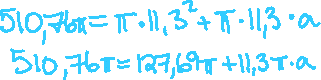 510,76π = π · 11,3² + π · 11,3 · a
510,76π = 127,69π + 11,3π · a